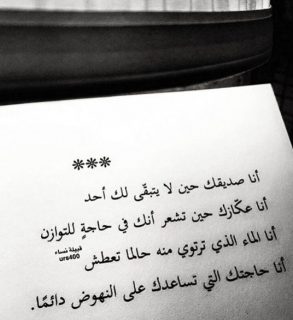 ***
أنا صديقك حين لا يتبقّى لك أحد
أنا عكّازك حين تشعر أنك في حاجةٍ للتوازن
أنا الماء الذي ترتوي منه حالما تعطش
قبيلة نساء
urs400
أنا حاجتك التي تساعدك على النهوض دائمًا.